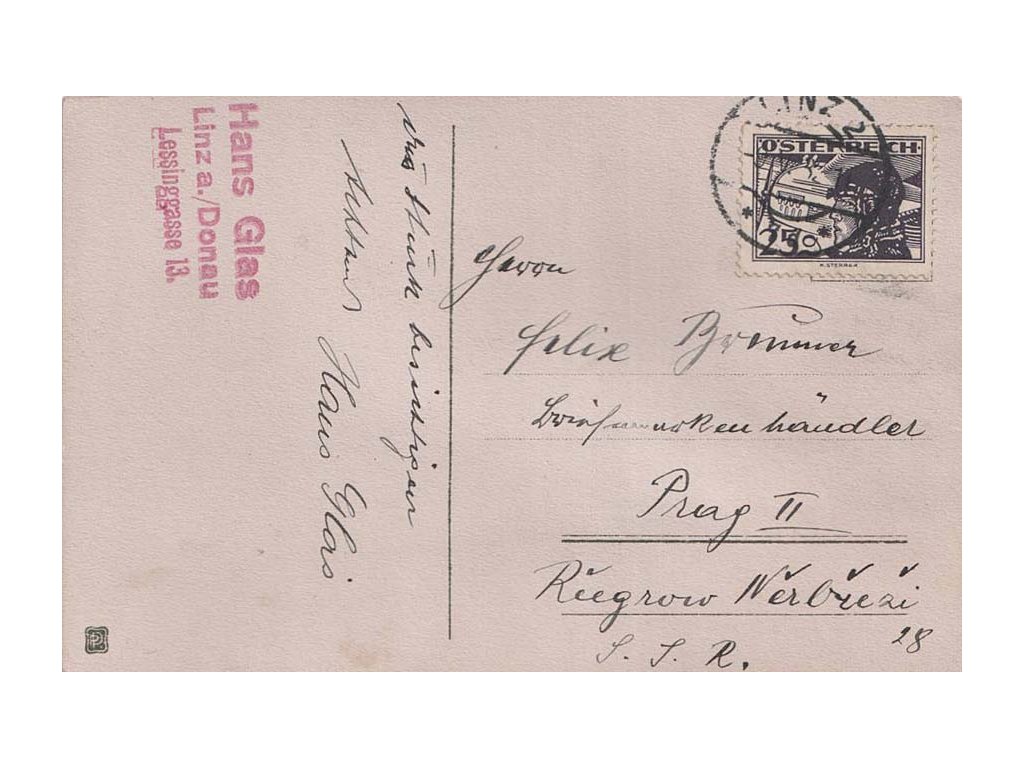 Hans Glas
Linz a./Donau
Lessinggasse 13.
Achtens
Hans Glas
LINZ 2
ÖSTERREICH
Herrn
Felix Brunner
Briefmarkenhändler
Prag II
Riegrow Něrbřeži
28
Č. S. R.